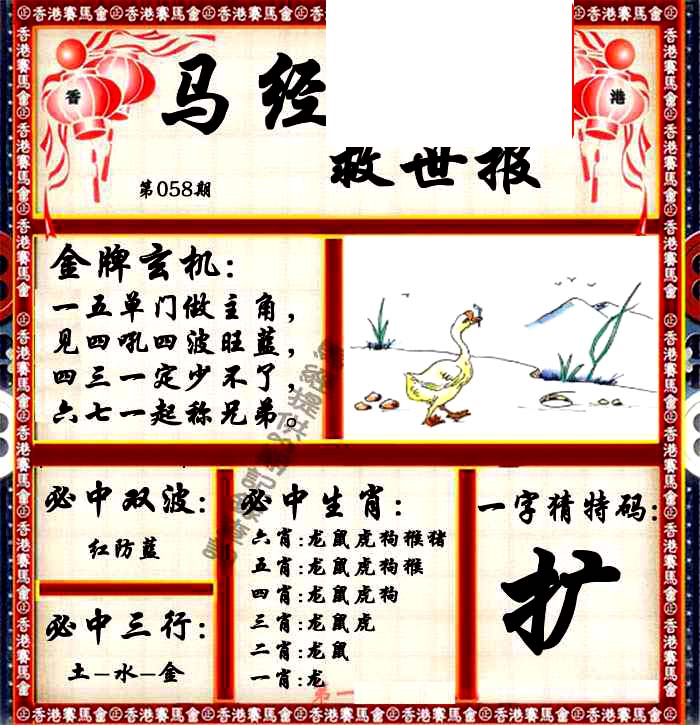 香港賽馬會 香港賽馬會 香港賽馬會 香港賽馬會 香港賽馬會 香港賽馬會
香 港
马经
救世报
第058期
金牌玄机：
一五单门做主角，
见四吼四波旺蓝，
四三一定少不了，
六七一起称兄弟。
必中双波：
红防蓝
必中三行：
土-水-金
必中生肖：
六肖:龙鼠虎狗猴猪
五肖:龙鼠虎狗猴
四肖:龙鼠虎狗
三肖:龙鼠虎
二肖:龙鼠
一肖:龙
第一
一字猜特码：
扩
香港賽馬會 香港賽馬會 香港賽馬會 香港賽馬會 香港賽馬會 香港賽馬會